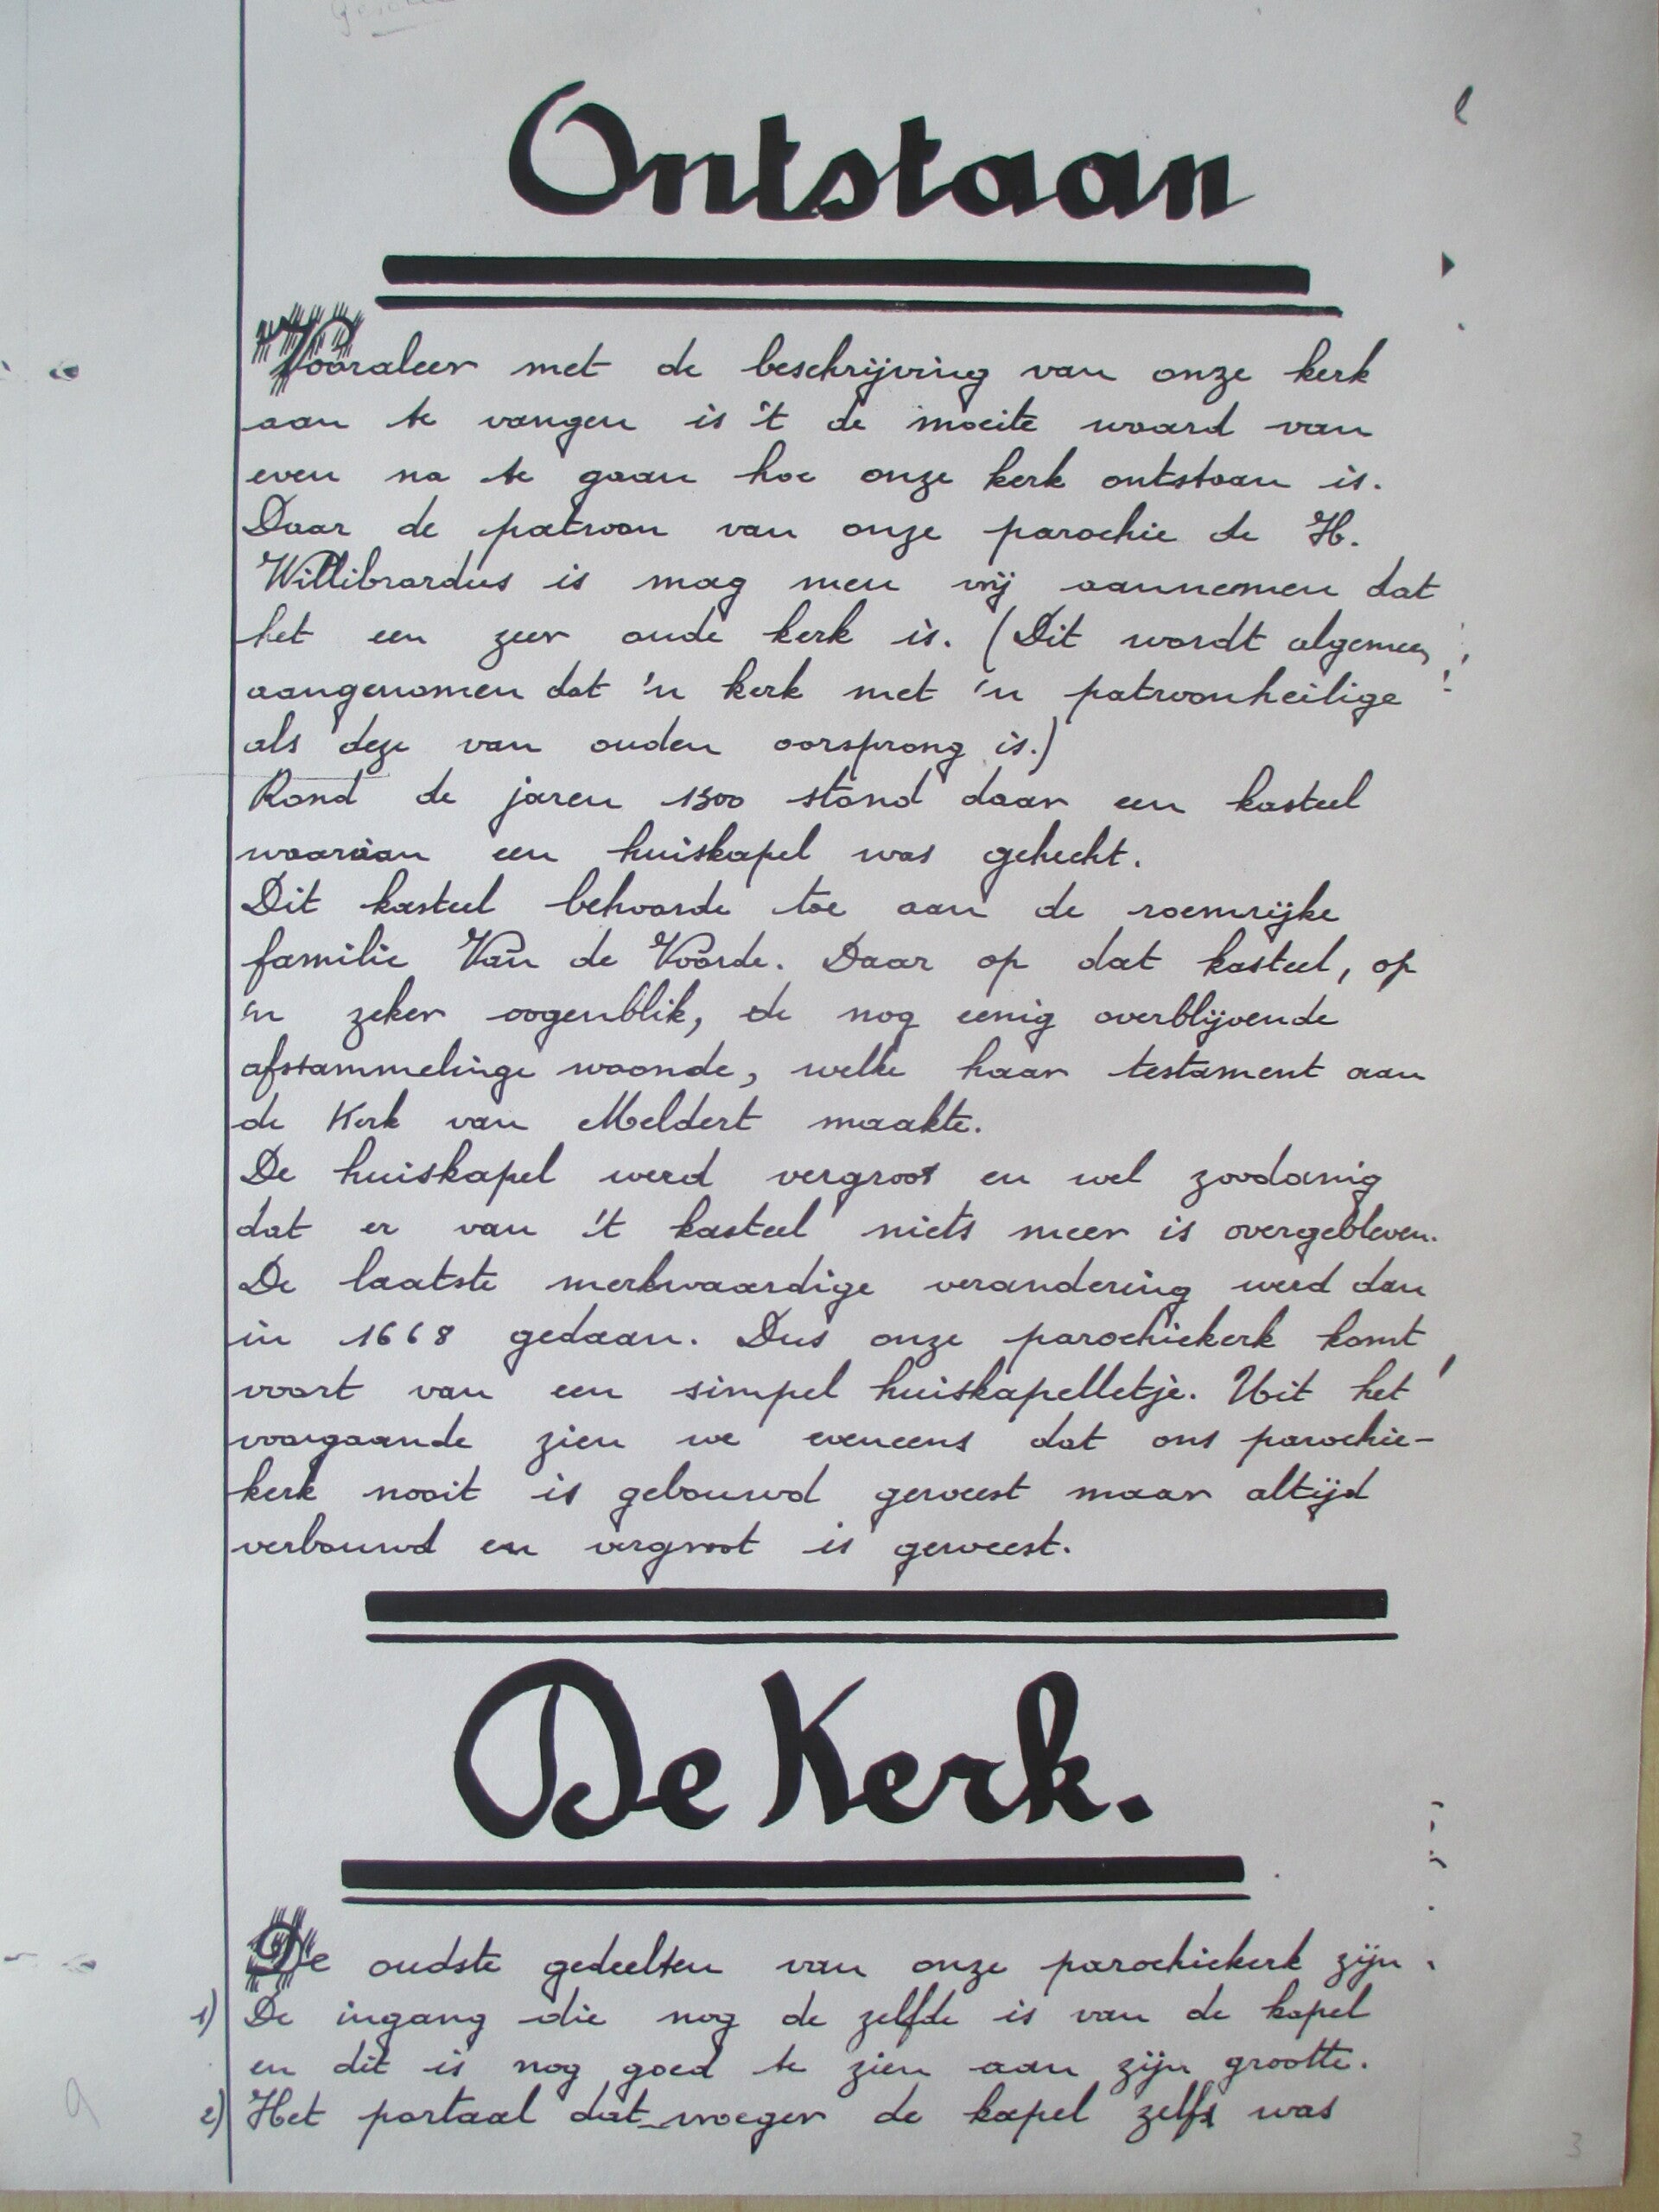 Ontstaan
Vooraleer met de beschrijving van onze kerk
aan te vangen is 't de moeite waard van
even na te gaan hoe onze kerk ontstaan is.
Daar de patroon van onze parochie de H.
Willibrordus is mag men vrij aannemen dat
het een zeer oude kerk is. (Dit wordt algemeen
aangenomen dat 'n kerk met 'n patroonheilige
als deze van ouden oorsprong is.)
Rond de jaren 1300 stond daar een kasteel
waaraan een huiskapel was gehecht.
Dit kasteel behoorde toe aan de roemrijke
familie Van de Voorde. Daar op dat kasteel, op
'n zeker oogenblik, de nog eenig overblijvende
afstammelinge woonde, welke haar testament aan
de Kerk van Meldert maakte.
De huiskapel werd vergroot en wel zoodanig
dat er van 't kasteel niets meer is overgebleven.
De laatste merkwaardige verandering werd dan
in 1668 gedaan. Dus onze parochiekerk komt
voort van een simpel huiskapelletje. Uit het
voorgaande zien we eveneens dat ons parochie-
kerk nooit is gebouwd geweest maar altijd
verbouwd en vergroot is geweest.
De Kerk.
De oudste gedeelten van onze parochiekerk zijn
1) De ingang die nog de zelfde is van de kapel
en dit is nog goed te zien aan zijn grootte.
2) Het portaal dat vroeger de kapel zelfs was
3